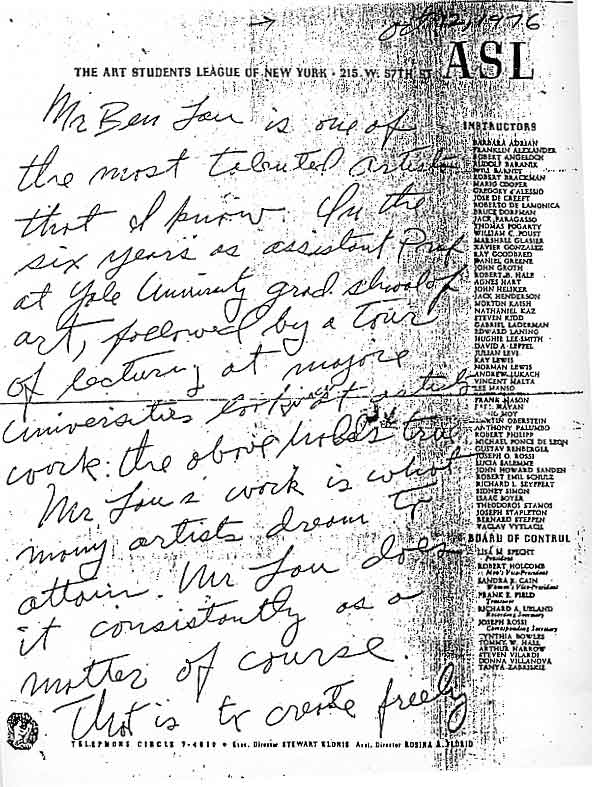 Oct 12, 1976
THE ART STUDENTS LEAGUE OF NEW YORK · 215 W. 57TH ST
ASL
Mr Ben Lau is one of
the most talented artists
that I know. In the
six years as assistant Prof
at Yale University grad. school of
art, followed by a tour
of lecturing at majore
universities looking at artists
work: the above holds true
Mr. Lau's work is what
many artists dream to
attain. Mr Lau does
it consistantly as a
matter of course.
That is to create freely
INSTRUCTORS
BARBARA ADRIAN
FRANKLIN ALEXANDER
ROBERT ANGELOCH
RUDOLF BARANIK
WILL BARNET
ROBERT BRACKMAN
MARIO COOPER
GREGORY d'ALESSIO
JOSE DE CREEFT
ROBERTO DE LAMONICA
BRUCE DORFMAN
JACK FARAGASSO
THOMAS FOGARTY
WILLIAM C. FOUST
MARSHALL GLASIER
XAVIER GONZALEZ
RAY GOODBRED
DANIEL GREENE
JOHN GROTH
ROBERT B. HALE
AGNES HART
JOHN HELIKER
JACK HENDERSON
MORTON KAISH
NATHANIEL KAZ
STEVEN KIDD
GABRIEL LADERMAN
EDWARD LANING
HUGHIE LEE-SMITH
DAVID A. LEFFEL
JULIAN LEVI
KAY LEWIS
NORMAN LEWIS
ANDREW LUKACH
VINCENT MALTA
LEE MANSO
FRANK MASON
MAYAN
MOY
MARTIN OBERSTEIN
ANTHONY PALUMBO
ROBERT PHILIPP
MICHAEL PONCE DE LEON
GUSTAV REHBERGER
JOSEPH O. ROSSI
LUCIA SALEMME
JOHN HOWARD SANDEN
ROBERT EMIL SCHULZ
RICHARD L. SEYFFERT
SIDNEY SIMON
ISAAC SOYER
THEODOROS STAMOS
JOSEPH STAPLETON
BERNARD STEFFEN
VACLAV VYTLACIL
BOARD OF CONTROL
LISA M. SPECHT
President
ROBERT HOLCOMB
Men's Vice-President
SANDRA R. CAIN
Women's Vice-President
FRANK E. FIELD
Treasurer
RICHARD A. UELAND
Recording Secretary
JOSEPH ROSSI
Corresponding Secretary
CYNTHIA BOWLES
TOMMY W. HALL
ARTHUR HARROW
STEVEN VILARDI
DONNA VILLANOVA
TANYA ZABRISKIE
TELEPHONE CIRCLE 7-4510 • Exec. Director STEWART KLONIS Asst. Director ROSINA A. FLORIO